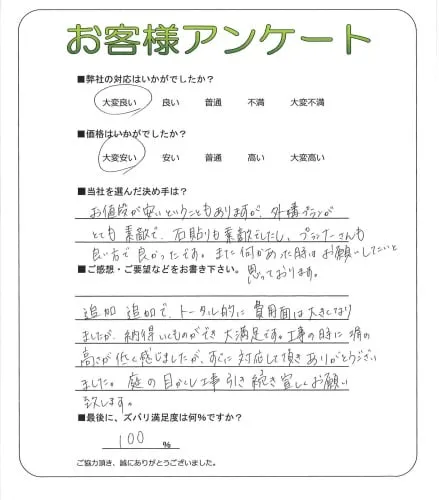 お客様アンケート
■弊社の対応はいかがでしたか？
大変良い 良い 普通 不満 大変不満
■価格はいかがでしたか？
大変安い 安い 普通 高い 大変高い
■当社を選んだ決め手は？
お値段が安いということもありますが、外構プランが
とても素敵で、石貼りも素敵でしたし、プランナーさんも
良い方で良かったです。また何かあった時はお願いしたいと
思っております。
■ご感想・ご要望などをお書き下さい。
追加 追加で、トータル的に費用面は大きくなり
ましたが、納得いくものができ大満足です。工事の時に塀の
高さが低く感じましたが、すぐに対応して頂きありがとうござい
ました。庭の目かくし工事引き続き宜しくお願い
致します。
■最後に、ズバリ満足度は何%ですか？
100 %
ご協力頂き、誠にありがとうございました。